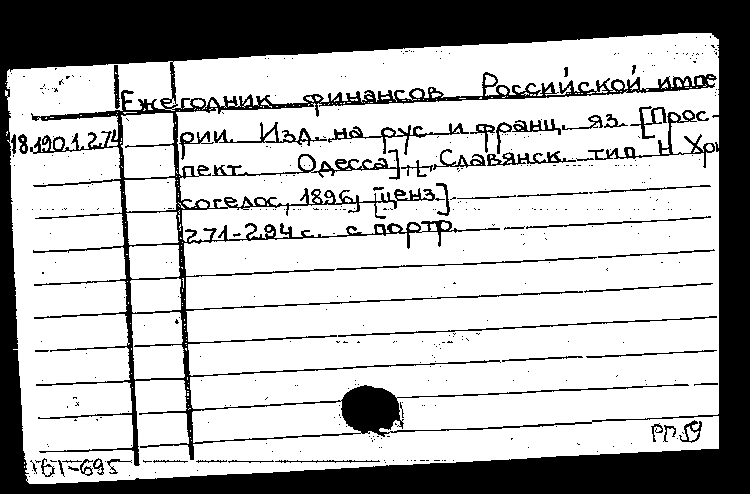 Ежегодник финансов Российской импе
18.190.1.274 рии. Изд. на рус. и франц. яз. [Прос-
пект. Одесса], [„Славянск. тип. Н Хри
согелос, 1896, [ценз.]
271-294 с. с портр.
РП 59
161-695